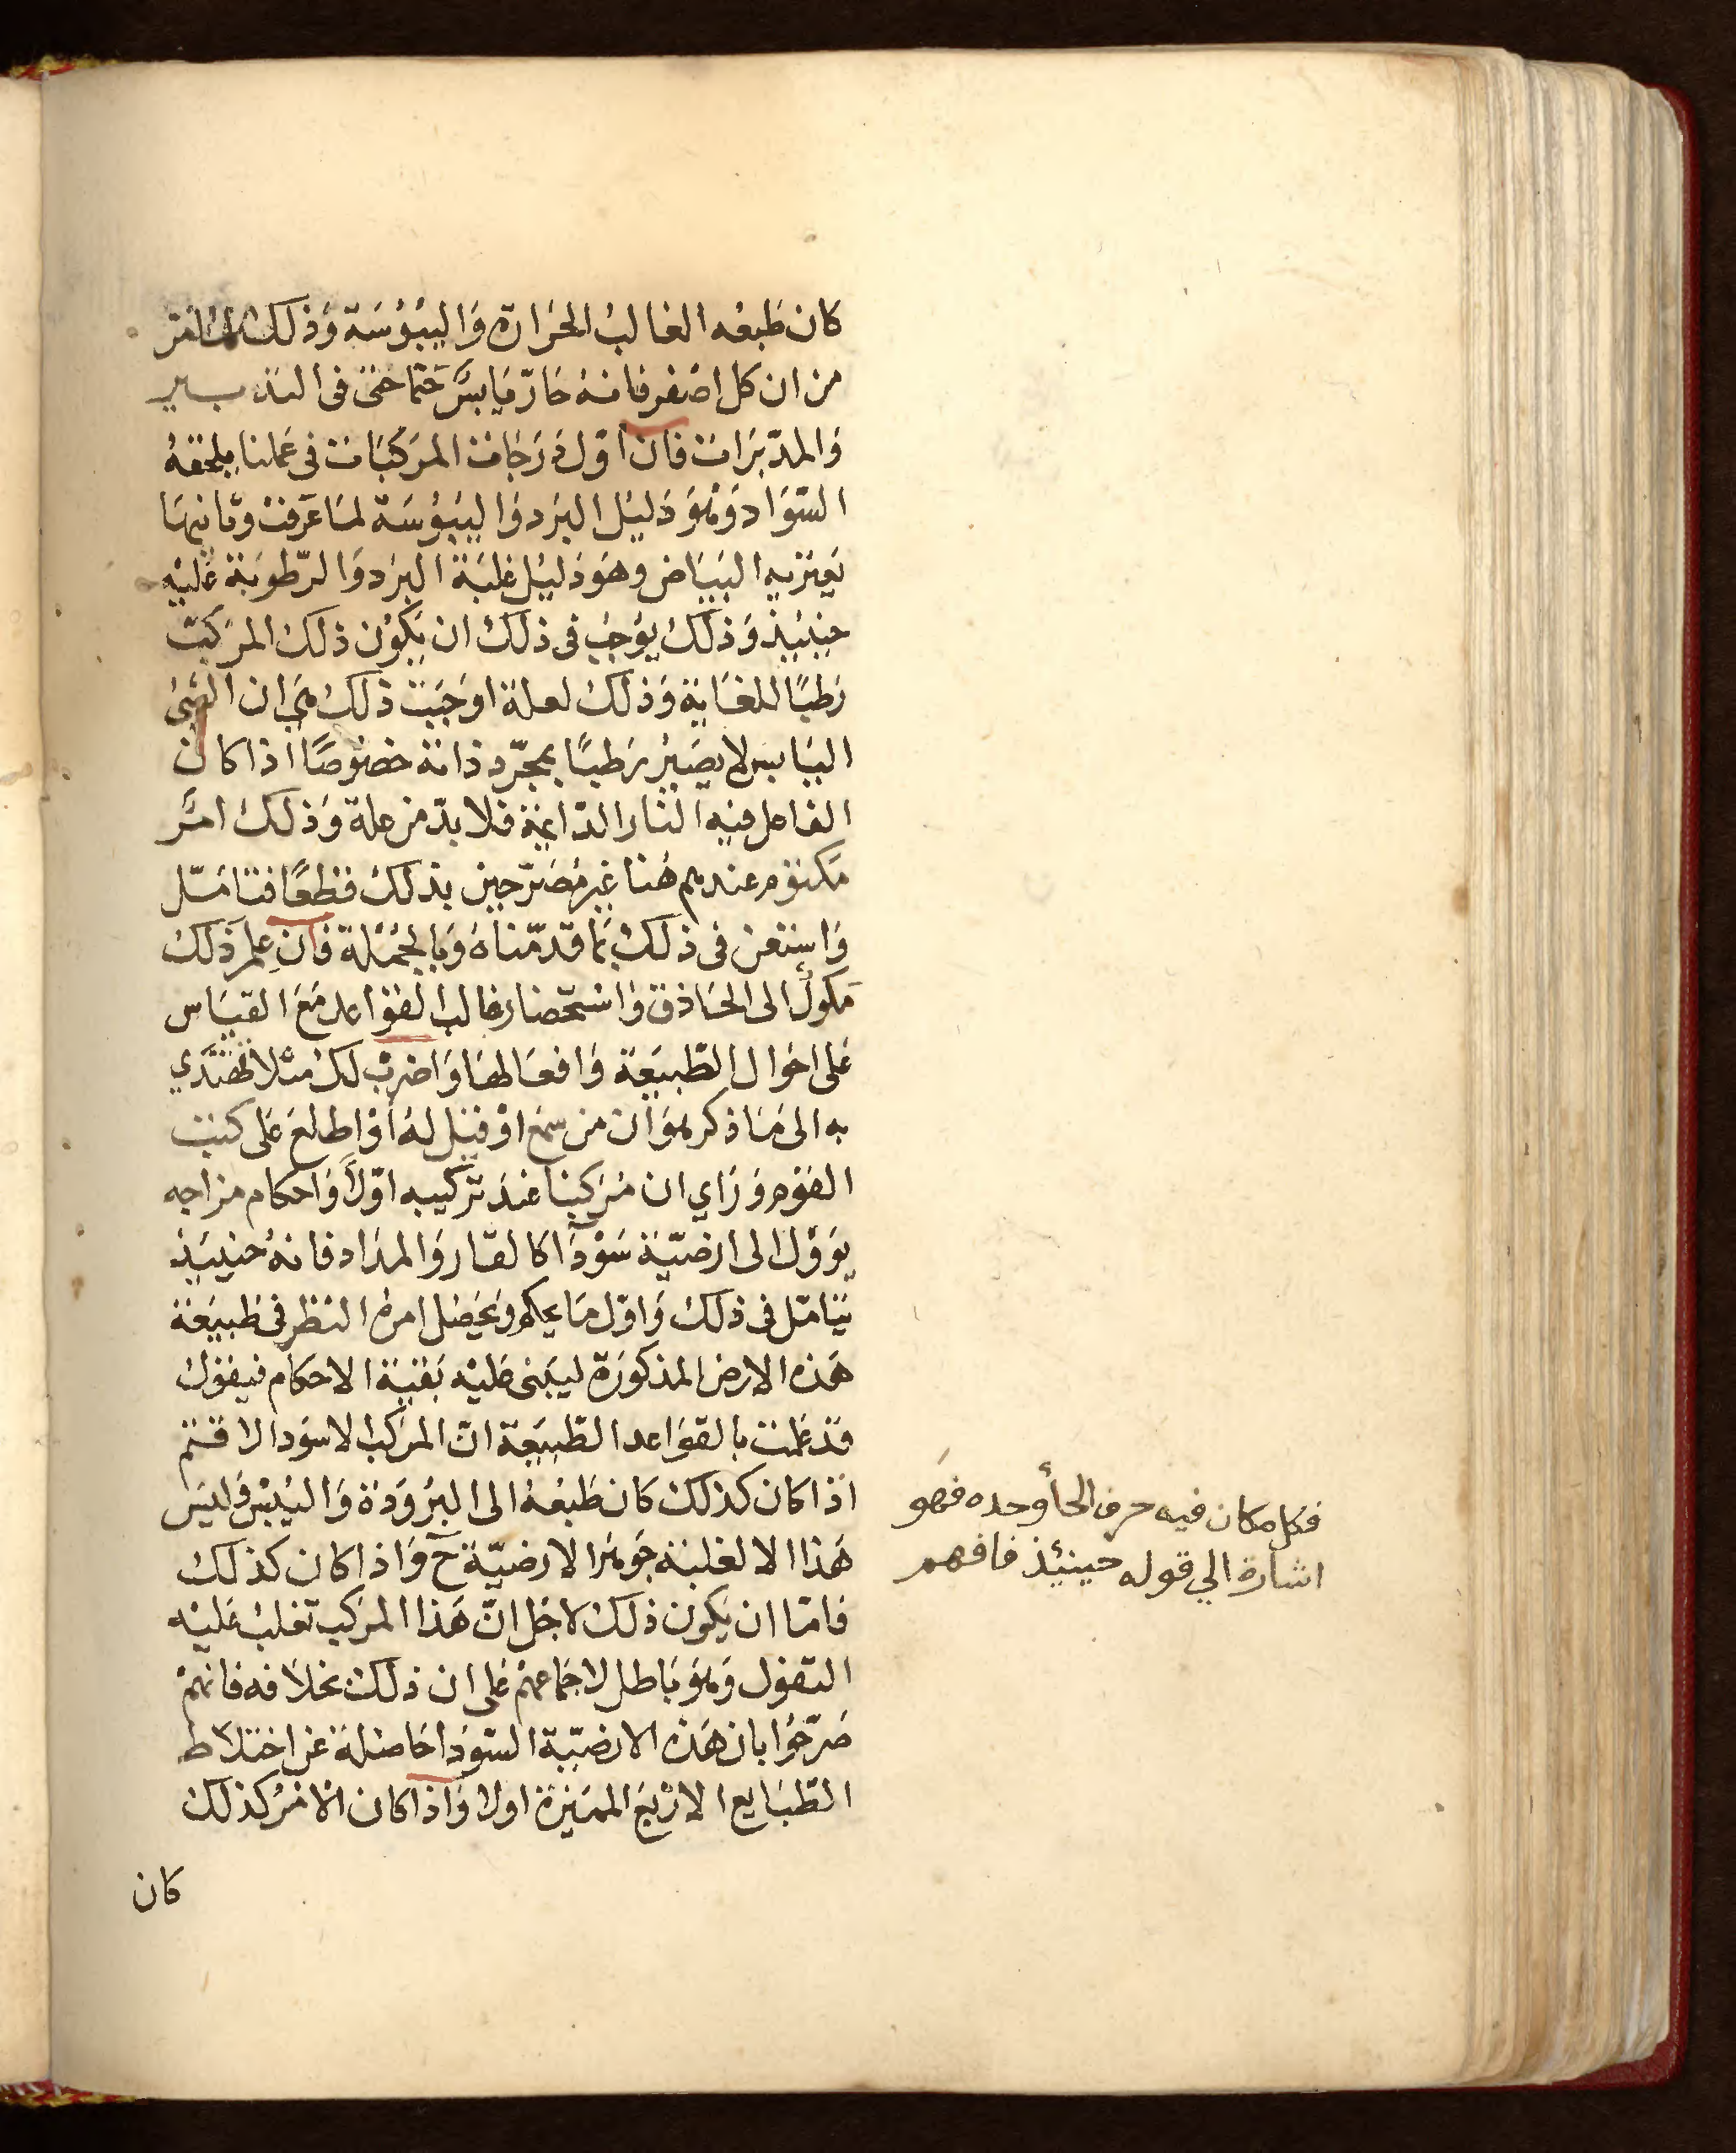 كان طبعه الغالب الحرارة واليبوسة وذلك لما تقرر
من ان كل اصفر فانه حار يابس حتما حتى في التدبير
والمدبرات فان اول درجات المركبات في عملنا يلحقه
السواد وهو دليل البرد واليبوسة لما عرفت وثانيها
يعتريه البياض وهو دليل غلبة البرد والرطوبة عليه
حينيذ وذلك يوجب في ذلك ان يكون ذلك المركب
رطبا للغاية وذلك لعلة اوجبت ذلك هي ان الشي
اليابس لا يصير رطبا بمجرد ذاته خصوصا اذا كان
الفاعل فيه النار الدايمة فلا بد من علة وذلك امر
مكتوم عندهم هنا غير مصرحين بذلك قطعا فتامل
واستعن في ذلك بما قدمناه وبالجملة فان علم ذلك
مكول الى الحاذق واستحضار غالب القواعد مع القياس
على احوال الطبيعة وافعالها واضرب لك مثلا تهتدي
به الى ما ذكر هو ان من سمع او قيل له او اطلع على كتب
القوم وراي ان مركبنا عند تركيبه اولا واحكام مزاجه
يوول الى ارضية سودآ كالقار والمداد فانه حينيذ
يتامل في ذلك واول ما يحكم ويحصل امره النظر في طبيعة
هذه الارض المذكورة ليبنى عليه بقية الاحكام فيقول
قد علمت بالقواعد الطبيعة ان المركب الاسود الاقتم
اذا كان كذلك كان طبعه الى البرودة واليبس وليس
هذا الا لغلبة جوهر الارضية ح واذا كان كذلك
فاما ان يكون ذلك لاجل ان هذا المركب تغلب عليه
الثفول وهو باطل لاجماعهم على ان ذلك بخلافه فانهم
صرحوا بان هذه الارضية السودا حاصلة عن اختلاط
الطبايع الاربع المميزة اولا واذا كان الامر كذلك
كان
فكل مكان فيه حرف الحأ وحده فهو
اشارة الي قوله حينيئذ فافهم